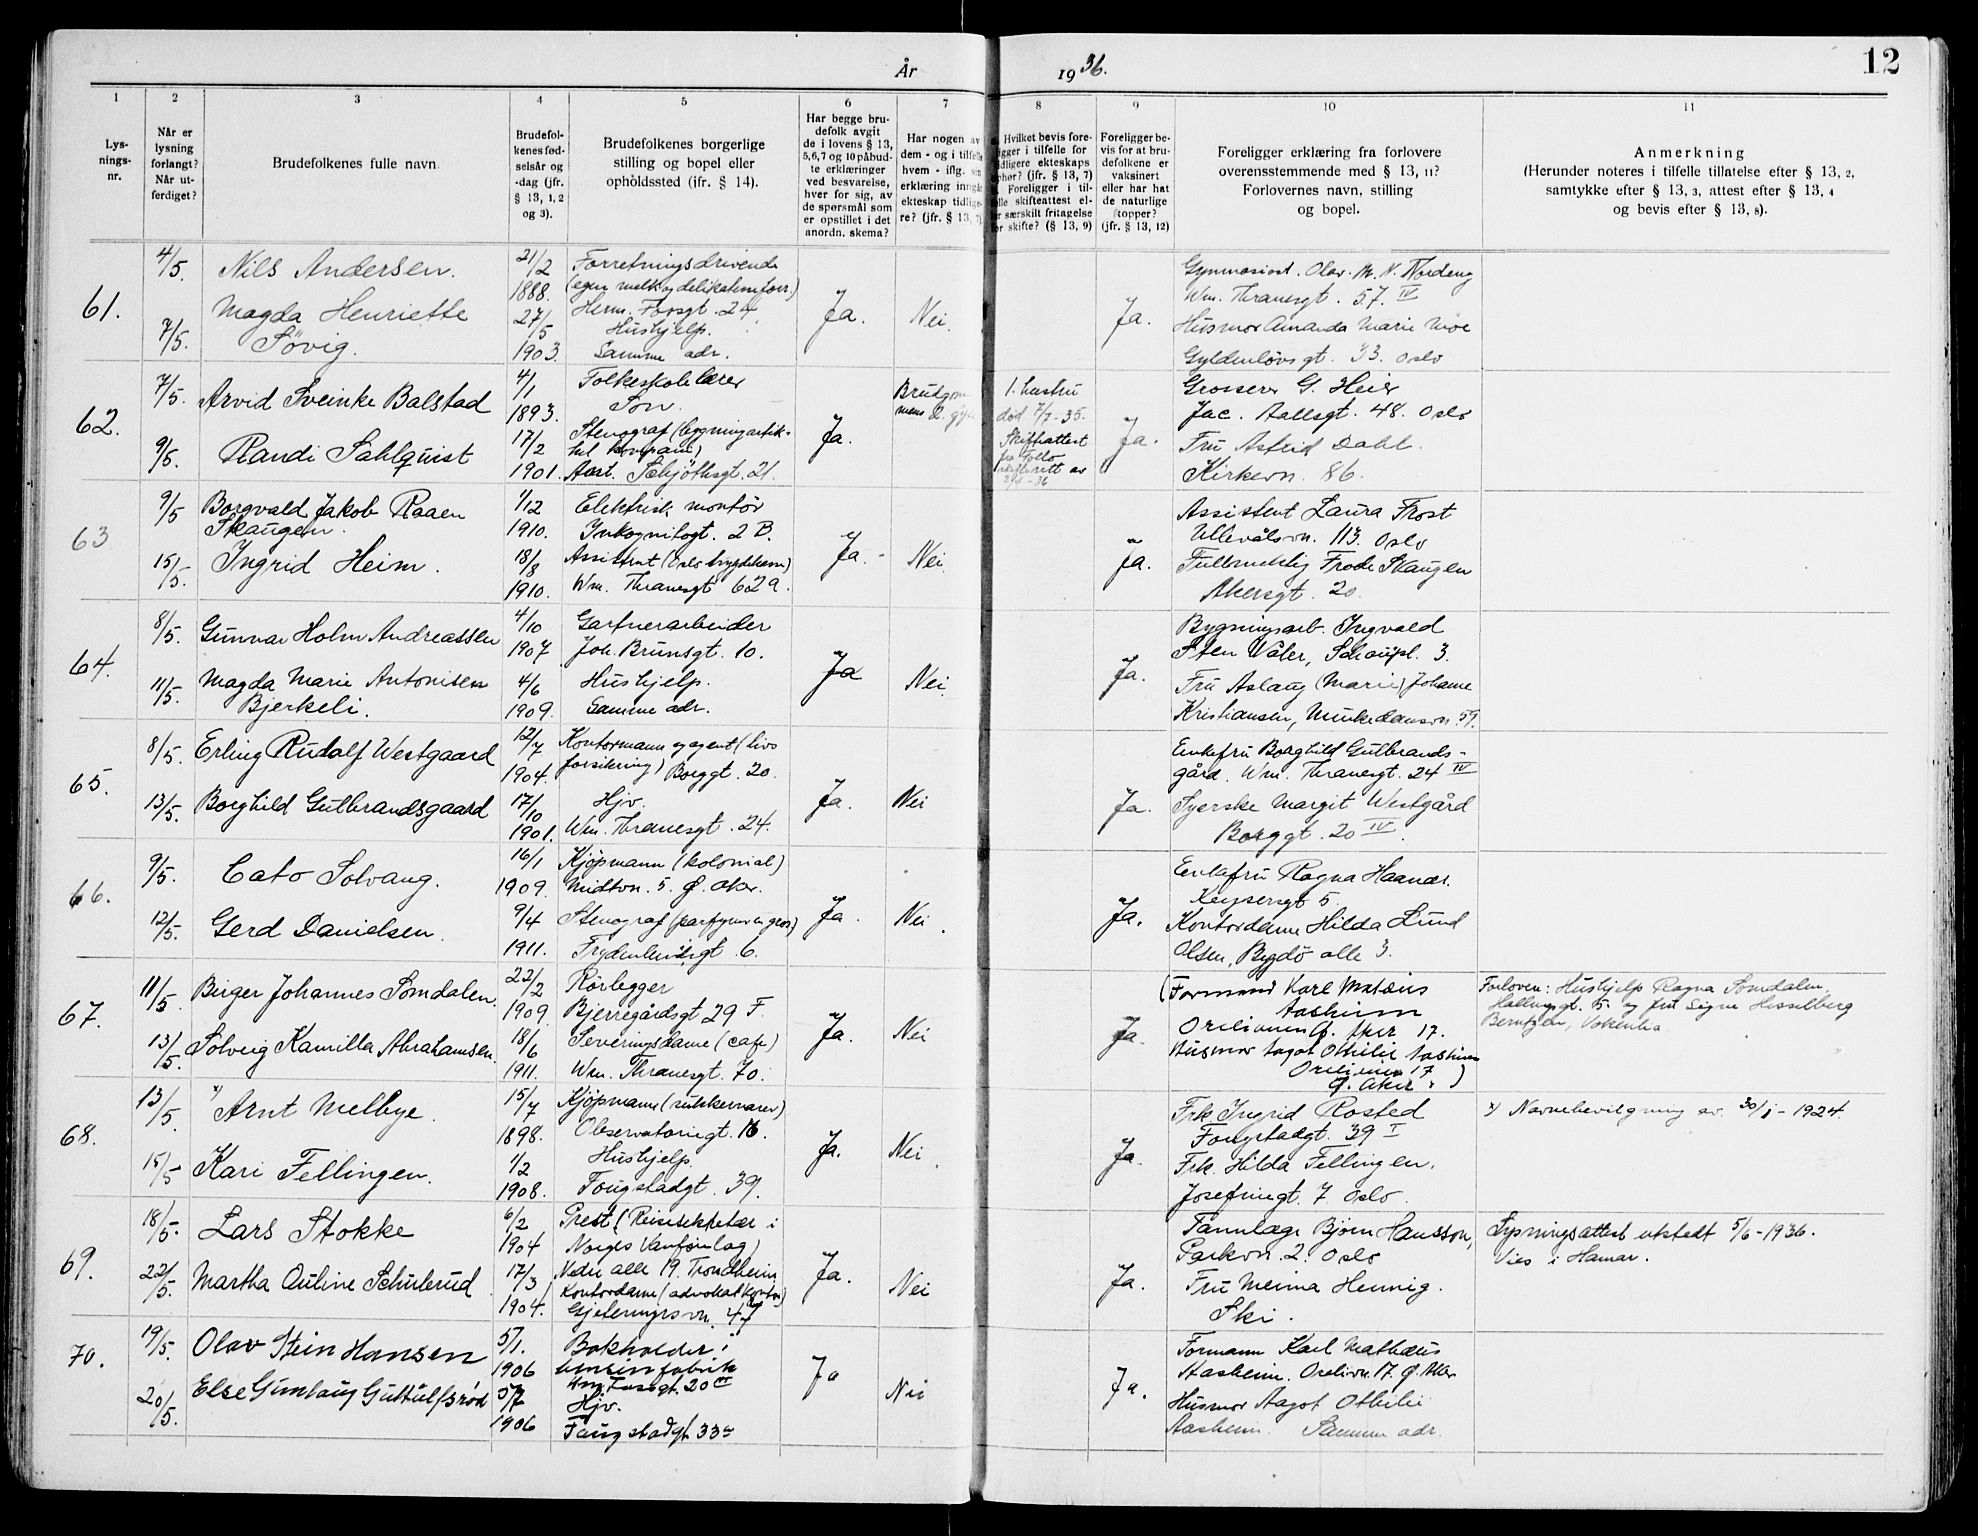 År 1936.
12
1 2 3 4 5 6 7 8 9 10 11
Lys-
nings-
nr.
Når er
lysning
forlangt?
Når ut-
ferdiget?
Brudefolkenes fulle navn.
Brudefol-
kenes fød-
selsår og
-dag (jfr.
§ 13, 1, 2
og 3).
Brudefolkenes borgerlige
stilling og bopel eller
opholdssted (jfr. § 14).
Har begge bru-
defolk avgit
de i lovens § 13,
5, 6, 7 og 10 påbud-
te erklæringer
ved besvarelse,
hver for sig, av
de spørsmål som
er opstillet i det
anordn. skema?
Har nogen av
dem - og i tilfelle
hvem - iflg. sin
erklæring inngåt
ekteskap tidlige-
re? (jfr. § 13, 7)
Hvilket bevis fore-
ligger i tilfelle for
tidligere ekteskaps
ophør? (jfr. § 13, 7)
Foreligger i til-
felle skifteattest el-
ler særskilt fritagelse
for skifte? (§ 13, 9)
Foreligger be-
vis for at bru-
defolkene er
vaksinert
eller har hat
de naturlige
kopper?
(jfr. § 13, 12)
Foreligger erklæring fra forlovere
overensstemmende med § 13, 11?
Forlovernes navn, stilling
og bopel.
Anmerkning
(Herunder noteres i tilfelle tillatelse efter § 13, 2,
samtykke efter § 13, 3, attest efter § 13, 4
og bevis efter § 13, 8).
61.
4/5.
7/5.
Nils Andersen.
Magda Henriette
Søvig.
21/2
1888.
27/5
1903.
Forretningsdrivende
(egen melk og delikatesseforr.)
Herm. Fossgt. 24
Hushjelp.
Samme adr.
Ja.
Nei.
Ja.
Gymnasiast. Olav M. N. Nordeng
Wm. Thranesgt. 57. IV
Husmor Amanda Marie Moe
Gyldenløvsgt. 33. Oslo
62.
7/5.
9/5.
Arvid Sveinke Balstad
Randi Sahlquist
4/1
1893.
17/2
1901.
Folkeskolelærer
Son.
Stenograf (bygningartik-
kel kompani)
Aast. Schjøttsgt. 21.
Ja.
Brudgom
mens 2. gift
1. hustru
død 7/7-35.
Skifteattest
fra Follo
skifterett av
Ja.
Grosserer G. Heier
Jac. Aallsgt. 48. Oslo
Fru Astrid Dahl.
Kirkevn. 86.
63
9/5
15/5.
Borgvald Jakob Raaen
Skaugen.
Ingrid Heim.
1/12
1910.
18/8
1910.
Elektrisk montør
Inkognitogt. 2 B.
Assistent (Oslo trygdekasse)
Wm. Thranesgt 62a.
Ja.
Nei.
Ja.
Assistent Laura Frost
Ullevålsvn. 113. Oslo
Fullmektig Frode Skaugen
Akersgt. 20.
64.
8/5.
11/5.
Gunnar Holm Andreassen
Magda Marie Antonisen
Bjerkeli.
4/10
1907
4/6
1909.
Gartnerarbeider
Joh. Brunsgt. 10.
Hushjelp.
Samme adr.
Ja
Nei.
Ja.
Bygningsarb. Ingvald
Sten Våler, Schoupl. 3.
Fru Aslaug (Marie) Johanne
Kristiansen, Munkedamsvn. 59.
65.
8/5.
13/5.
Erling Rudolf Westgaard
Borghild Gulbrandsgaard
12/7
1904.
17/10
1901.
Kontormann og agent (livs
forsikring) Borggt. 20.
Hjv.
Wm. Thranesgt. 24.
Ja.
Nei
Ja.
Enkefru Borghild Gulbrands-
gård. Wm. Thranesgt. 24 IV
Syerske Margit Westgård
Borggt. 20 IV.
66.
9/5.
12/5.
Cato Solvang.
Gerd Danielsen.
16/1
1909.
9/4
1911.
Kjøpmann (kolonial)
Midtvn. 5. Ø. Aker.
Stenograf (parfymeri gros)
Frydenlundsgt. 6.
Ja.
Nei.
Ja.
Enkefru Ragna Haanes.
Keysersgt 5.
Kontordame Hilda Lund
Olsen, Bygdø alle 3.
67.
11/5.
13/5.
Birger Johannes Somdalen.
Solveig Kamilla Abrahamsen.
22/2
1909.
18/6
1911.
Rørlegger
Bjerregårdsgt 29 F.
Serveringsdame (cafe)
Wm. Thranesgt. 70.
Ja.
Nei
Ja.
(Formand Karl Matæus
Aasheim
Orelivnen Ø. Aker 17.
Husmor Aagot Othilie Aasheim
Orelivnen 17
Ø. Aker.)
Forlover: Hushjelp Ragna Somdalen,
Hallingsgt. 5. og fru Signe Hesselberg
Berntzen, Voksenlia.
68.
13/5.
15/5
x) Arnt Melbye.
Kari Fellingen.
15/7
1898.
1/2
1908.
Kjøpmann (sukkervarer)
Observatoriegt. 16.
Hushjelp.
Fougstadgt. 39.
Ja.
Nei.
Ja.
Frk Ingrid Rosted
Fougstadgt. 39 I
Frk. Hilda Fellingen.
Josefinegt. 7 Oslo.
x) Navnebevilgning av 30/1-1924.
69.
18/5.
22/5.
Lars Stokke
Martha Ouline Schulerud
6/2
1904
17/3
1904.
Prest (Reisesekretær i
Norges Vanførelag)
Nedre alle 19. Trondheim
Kontordame (advokatkontor)
Gjeteringsvn. 47
Ja.
Nei
Ja.
Tannlæge Bjørn Hansson,
Parkvn. 2. Oslo
Fru Meima Hennig.
Ski.
Lysningsattest utstedt 5/6-1936.
Vies i Hamar.
70.
19/5.
20/5.
Olav Stein Hansen
Else Gunlaug Guttulfsrød
5/1.
1906
5/7
1906
Bokholder i
bensinfabrik
Hm. Fossgt. 20 c
Hjv.
Fougstadgt 33 c
Ja
Nei
Ja.
Formann Karl Mathæus
Aasheim. Orelivn. 17. Ø. Aker
Husmor Aagot Othilie
Aasheim. Samme adr.